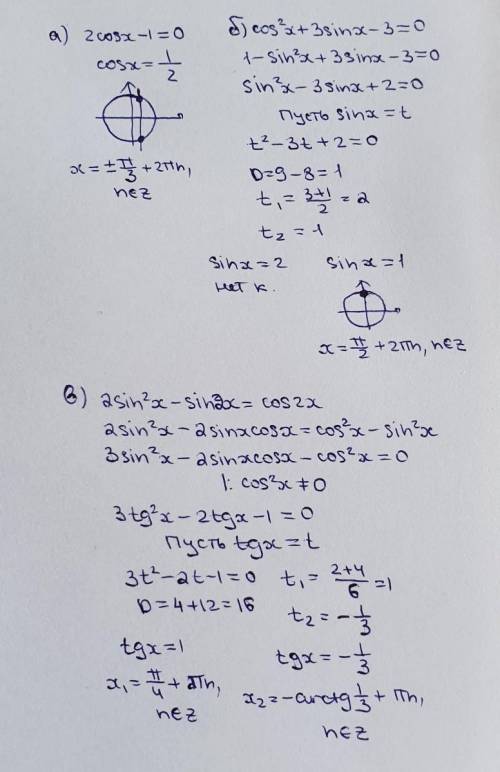 а) 2cosx-1=0
cosx=1/2
x=±π/3+2πn,
n∈Z
б) cos²x+3sinx-3=0
1-sin²x+3sinx-3=0
sin²x-3sinx+2=0
Пусть sinx=t
t²-3t+2=0
D=9-8=1
t₁=(3+1)/2=2
t₂=1
sinx=2 sinx=1
нет к.
x=π/2+2πn, n∈Z
в) 2sin²x-sin2x=cos2x
2sin²x-2sinxcosx=cos²x-sin²x
3sin²x-2sinxcosx-cos²x=0
|:cos²x≠0
3tg²x-2tgx-1=0
Пусть tgx=t
3t²-2t-1=0 t₁=(2+4)/6=1
D=4+12=16 t₂=-1/3
tgx=1 tgx=-1/3
x₁=π/4+πn, x₂=-arctg1/3+πn,
n∈Z n∈Z